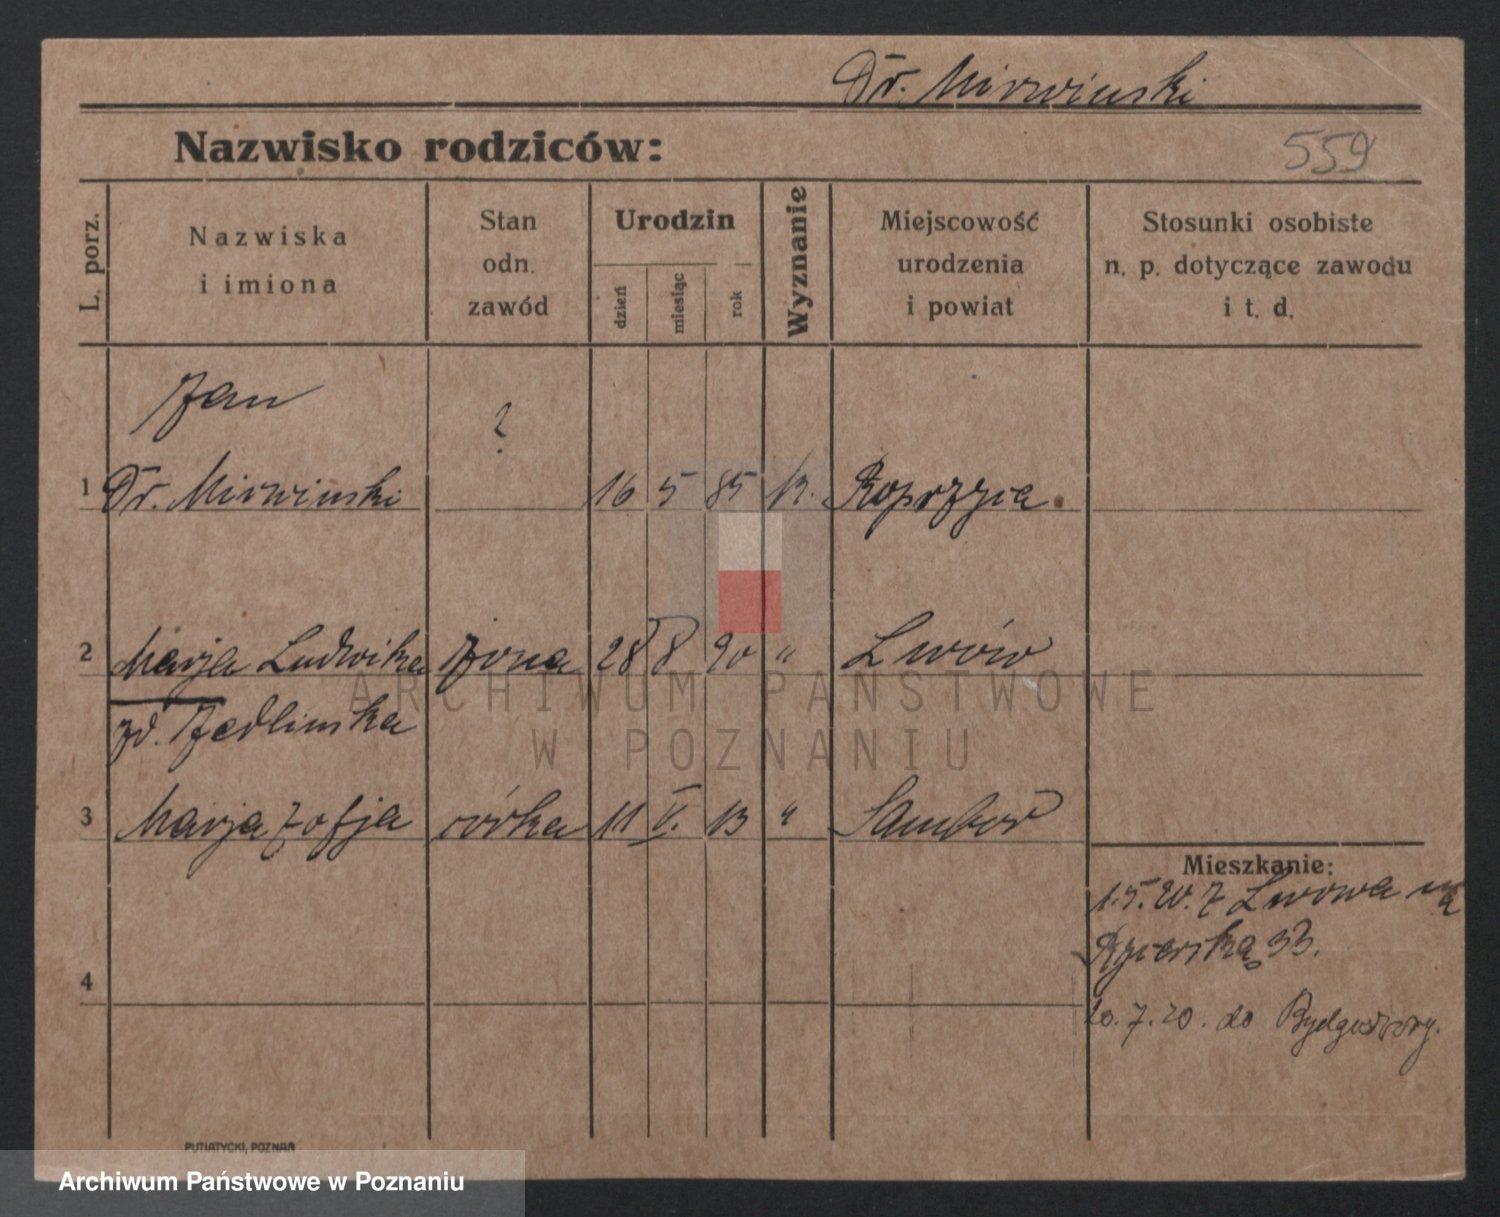 Dr. Mirwinski
Nazwisko rodziców:
559
L. porz.
Nazwiska
i imiona
Stan
odn.
zawód
Urodzin
dzień
miesiąc
rok
Wyznanie
Miejscowość
urodzenia
i powiat
Stosunki osobiste
n. p. dotyczące zawodu
i t. d.
Jan
?
1 Dr. Mirwinski 16 5 85 k.
2 Marja Ludwika żona 28 8 90 " Lwów
zd. Jedlinska
3 Marja Zofja córka 11 V. 13 " Sambor
Mieszkanie:
1.5.20. z Lwowa na
33.
4
20.7.20. do Bydgoszczy.
ARCHIWUM PAŃSTWOWE
W POZNANIU
PUTIATYCKI, POZNAŃ
Archiwum Państwowe w Poznaniu